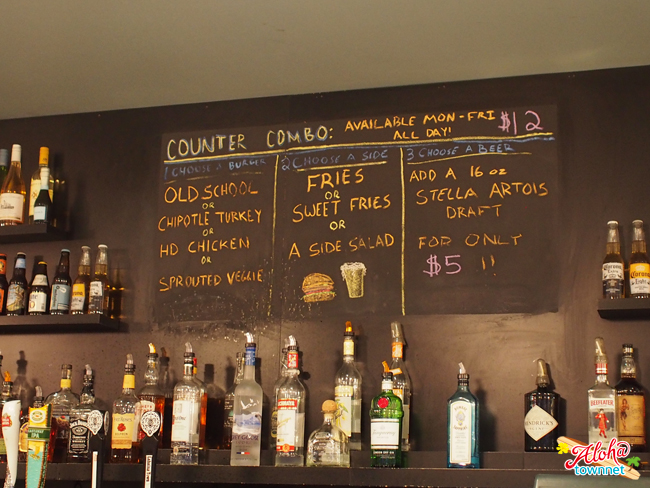 COUNTER COMBO: AVAILABLE MON-FRI $12
ALL DAY!
1 CHOOSE A BURGER
OLD SCHOOL
OR
CHIPOTLE TURKEY
OR
HD CHICKEN
OR
SPROUTED VEGGIE
2 CHOOSE A SIDE
FRIES
OR
SWEET FRIES
OR
A SIDE SALAD
3 CHOOSE A BEER
ADD A 16 OZ
STELLA ARTOIS
DRAFT
FOR ONLY
$5 !!
Corona
IPA
BEEFEATER
HENDRICK'S
Aloh@
townnet